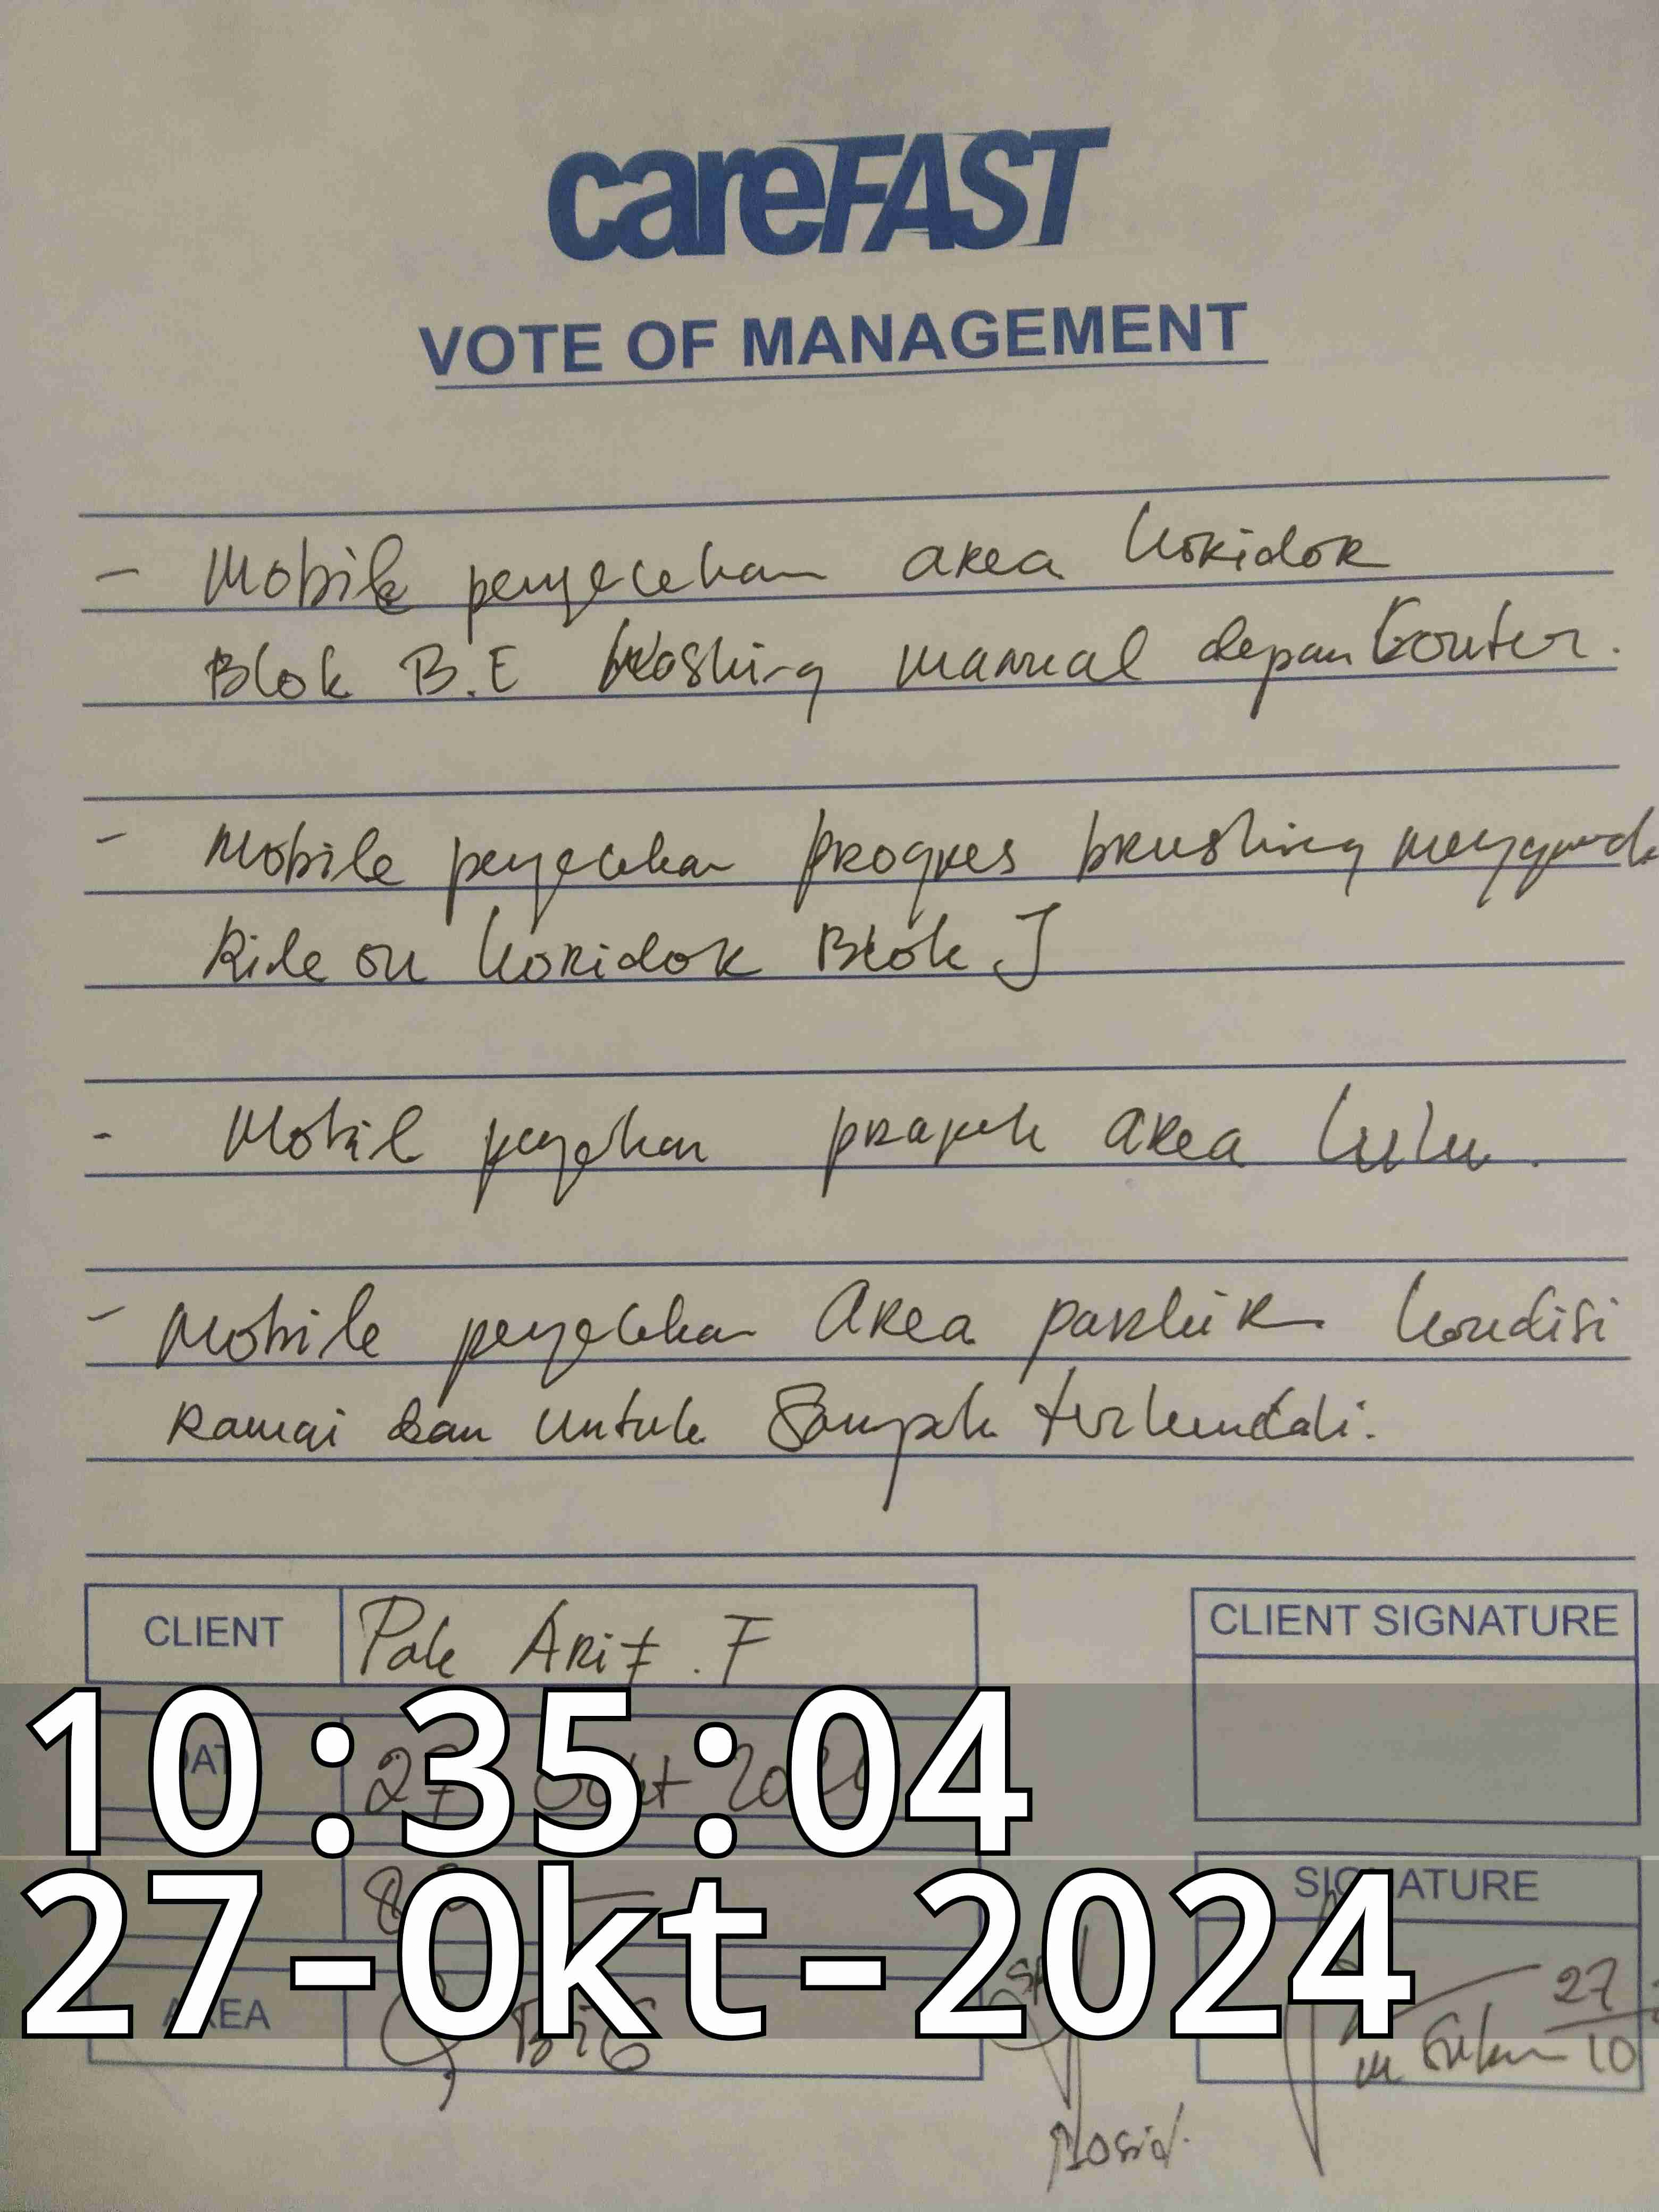 careFAST
VOTE OF MANAGEMENT
- Mobile penyecekan area koridor
Blok B.E Washing manual depan konter.
- Mobile penyecekan progres brushing
Ride on koridor Blok J
- Mobil area lulu.
- Mobile penyecekan Area parkir kondisi
Ramai dan untuk Sampah terkendali.
CLIENT Pak Arif. F
CLIENT SIGNATURE
10:35:04
27 Okt
27-Okt-2024
SIGNATURE
AREA
27
10
Rosid.